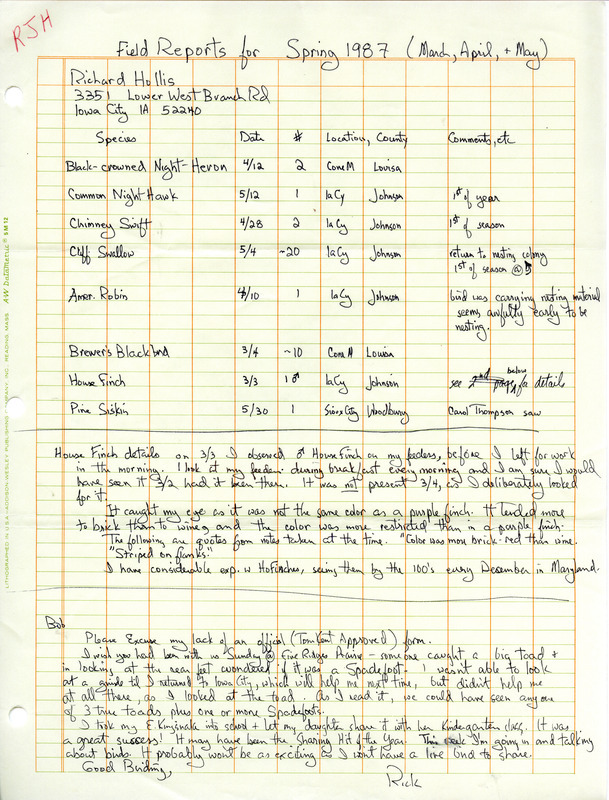 RJH
Field Reports for Spring 1987 (March, April, + May)
Richard Hollis
3351 Lower West Branch Rd
Iowa City IA 52240
Species Date # Location, County Comments, etc
Black-crowned Night-Heron 4/12 2 Cone M Louisa
Common Night Hawk 5/12 1 Ia Cy Johnson 1st of year
Chimney Swift 4/28 2 Ia Cy Johnson 1st of season
Cliff Swallow 5/4 ~20 Ia Cy Johnson return to nesting colony
1st of season @
Amer. Robin 4/10 1 Ia Cy Johnson bird was carrying nesting material
seems awfully early to be
nesting.
Brewer's Blackbird 3/4 ~10 Cone M Louisa
House Finch 3/3 1♂ Ia Cy Johnson see below for details
Pine Siskin 5/30 1 Sioux City Woodbury Carol Thompson saw
House Finch details on 3/3 I observed ♂ House Finch on my feeders, before I left for work
in the morning. I look at my feeders during breakfast every morning and I am sure I would
have seen it 3/2 had it been there. It was not present 3/4, as I deliberately looked
for it.
It caught my eye as it was not the same color as a purple finch. It tended more
to brick than to wine, and the color was more restricted than in a purple finch.
The following are quotes from notes taken at the time. "Color was more brick-red than wine.
"Striped on flanks."
I have considerable exp. w Ho Finches, seeing them by the 100's every December in Maryland.
Bob
Please Excuse my lack of an official (Tom Kent Approved) form.
I wish you had been with us Sunday @ Five Ridges Prairie - someone caught a big toad +
in looking at the rear feet wondered if it was a Spadefoot. I wasn't able to look
at a guide til I returned to Iowa City, which will help me next time, but didn't help me
at all there, as I looked at the toad. As I read it, we could have seen any one
of 3 true toads plus one or more Spadefoots.
I took my E. Kingsnake into school + let my daughter share it with her Kindergarten class. It was
a great success! It may have been the Sharing Hit of the Year. This week I'm going in and talking
about birds. It probably won't be as exciting as I won't have a live bird to share.
Good Birding,
Rick
LITHOGRAPHED IN U.S.A.-ADDISON-WESLEY PUBLISHING COMPANY, INC. READING MASS. AW DATAMETRIC® SM 12